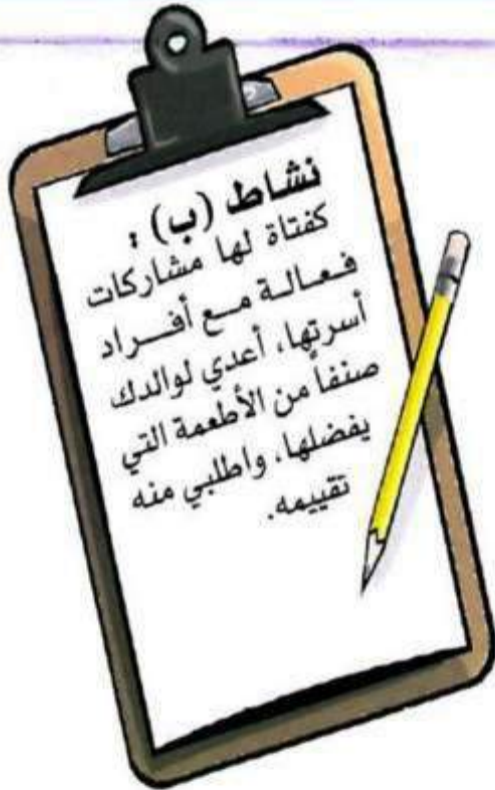 نشاط (ب) :
كفتاة لها مشاركات
فعـالـة مـع أفـــراد
أسرتها، أعدي لوالدك
صنفاً من الأطعمة التي
يفضلها، واطلبي منه
تقييمه.